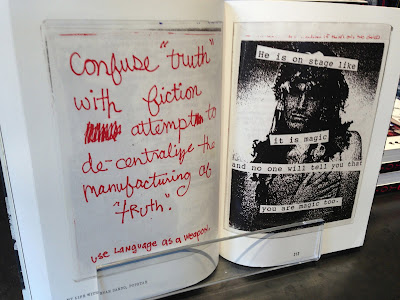 Confuse "truth"
with fiction
attempt to
de-centralize the
manufacturing of
"truth".
use language as a weapon.
He is on stage like
it is magic
and no one will tell you that
you are magic too.